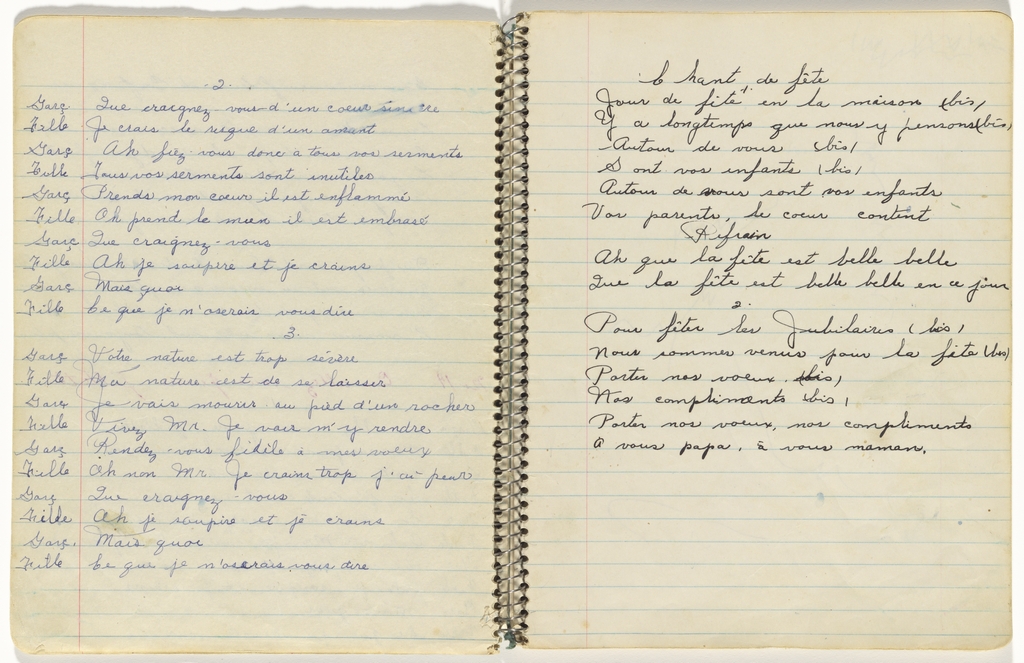 .2.
Garç Que craignez vous d'un coeur sincère
Fille Je crais le risque d'un amant
Garç Ah fiez-vous donc a tous vos serments
Fille Tous vos serments sont inutiles
Garç Prends mon coeur il est enflammé
Fille Oh prend le mien il est embrasé
Garç Que craignez-vous
Fille Ah je soupire et je crains
Garç Mais quoi
Fille Ce que je n'oserais vous dire
3.
Garç Votre nature est trop sévère
Fille Ma nature est de se laisser
Garç Je vais mourir au pied d'un rocher
Fille Vivez Mr. Je vais m'y rendre
Garç Rendez-vous fidile à mes voeux
Fille Oh non Mr. Je crains trop j'ai peur
Garç Que craignez-vous
Fille Ah je soupire et je crains
Garç. Mais quoi
Fille Ce que je n'oserais vous dire
Chant de fête
Jour de fête en la maison (bis)
Y a longtemps que nous y pensons (bis)
Autour de vous (bis)
Sont vos enfants (bis)
Autour de vous sont vos enfants
Vos parents, le coeur content
Refrain
Ah que la fête est belle belle
Que la fête est belle belle en ce jour
2.
Pour fêter les Jubilaires (bis)
Nous sommes venus pour la fête (bis)
Porter nos voeux (bis)
Nos compliments (bis)
Porter nos voeux, nos compliments
à vous papa, à vous maman.